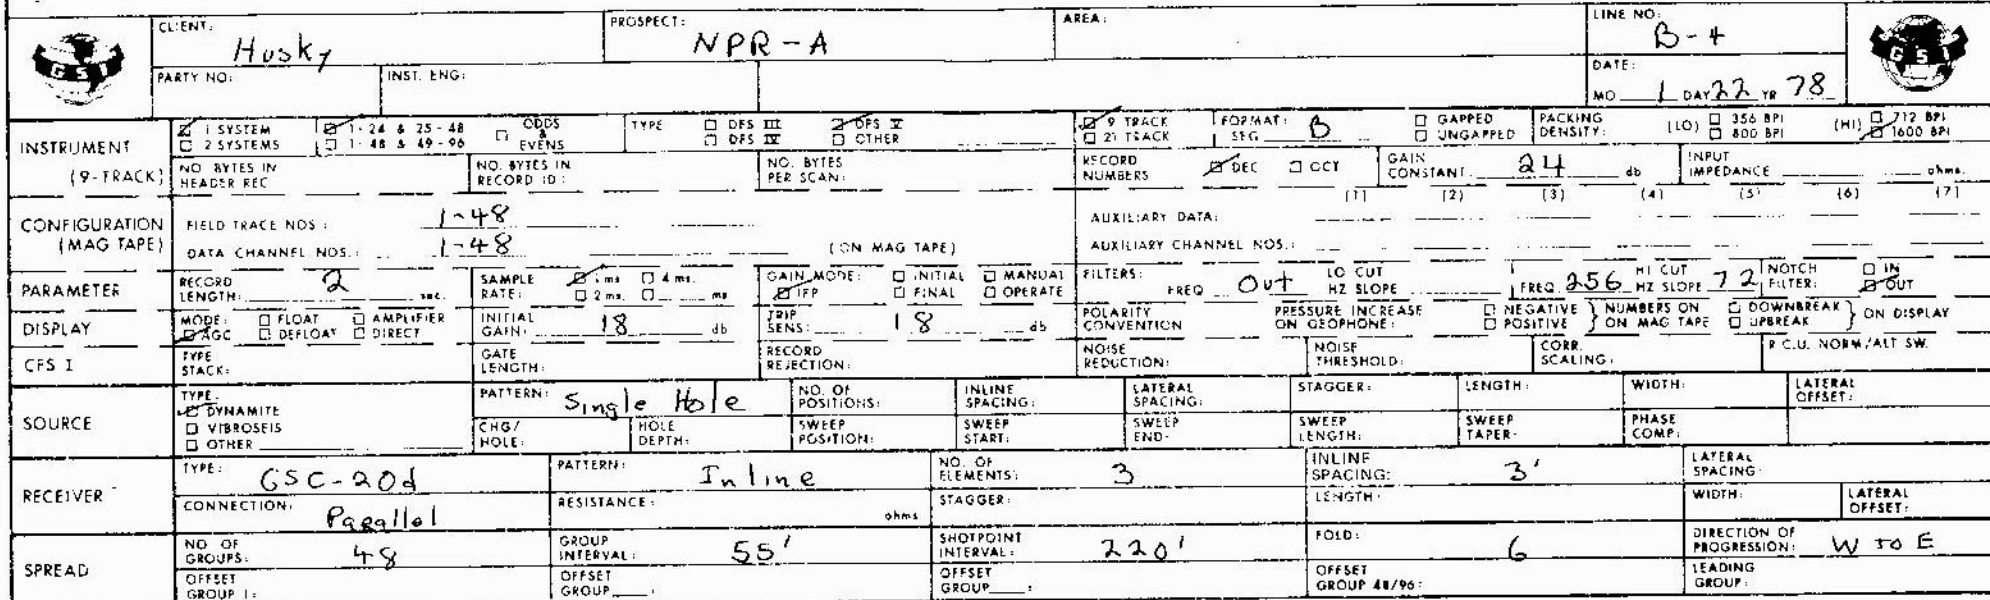 CLIENT: Husky PROSPECT: NPR-A AREA: LINE NO: B-4
GSI GSI
PARTY NO: INST. ENG: DATE:
MO 1 DAY 22 YR 78
INSTRUMENT (9-TRACK)
1 SYSTEM 1-24 & 25-48 ODDS & EVENS TYPE DFS III DFS V 9 TRACK FORMAT: SEG B GAPPED PACKING DENSITY: (LO) 356 BPI (HI) 712 BPI
2 SYSTEMS 1-48 & 49-96 DFS IV OTHER 21 TRACK UNGAPPED 800 BPI 1600 BPI
NO BYTES IN HEADER REC NO. BYTES IN RECORD ID: NO. BYTES PER SCAN: RECORD NUMBERS DEC OCT GAIN CONSTANT 24 db INPUT IMPEDANCE ohms.
(1) (2) (3) (4) (5) (6) (7)
CONFIGURATION (MAG TAPE)
FIELD TRACE NOS: 1-48 AUXILIARY DATA:
DATA CHANNEL NOS.: 1-48 (ON MAG TAPE) AUXILIARY CHANNEL NOS.:
PARAMETER RECORD LENGTH: 2 sec. SAMPLE RATE: 1 ms 4 ms. 2 ms. ms GAIN MODE: INITIAL MANUAL IFP FINAL OPERATE FILTERS: FREQ Out LO CUT HZ SLOPE FREQ 256 HI CUT HZ SLOPE 72 NOTCH FILTER: IN OUT
DISPLAY MODE: FLOAT AMPLIFIER AGC DEFLOAT DIRECT INITIAL GAIN: 18 db TRIP SENS: 18 db POLARITY CONVENTION PRESSURE INCREASE ON GEOPHONE: NEGATIVE POSITIVE NUMBERS ON MAG TAPE DOWNBREAK UPBREAK ON DISPLAY
CFS I TYPE STACK: GATE LENGTH: RECORD REJECTION: NOISE REDUCTION: NOISE THRESHOLD: CORR. SCALING: R.C.U. NORM/ALT SW.
SOURCE TYPE: PATTERN: Single Hole NO. OF POSITIONS: INLINE SPACING: LATERAL SPACING: STAGGER: LENGTH: WIDTH: LATERAL OFFSET:
DYNAMITE
VIBROSEIS
OTHER
CHG/HOLE: HOLE DEPTH: SWEEP POSITION: SWEEP START: SWEEP END- SWEEP LENGTH: SWEEP TAPER- PHASE COMP:
RECEIVER TYPE: GSC-20d PATTERN: Inline NO. OF ELEMENTS: 3 INLINE SPACING: 3' LATERAL SPACING:
CONNECTION: Parallel RESISTANCE: ohms STAGGER: LENGTH: WIDTH: LATERAL OFFSET:
SPREAD NO OF GROUPS: 48 GROUP INTERVAL: 55' SHOTPOINT INTERVAL: 220' FOLD: 6 DIRECTION OF PROGRESSION: W TO E
OFFSET GROUP 1: OFFSET GROUP : OFFSET GROUP : OFFSET GROUP 48/96: LEADING GROUP: